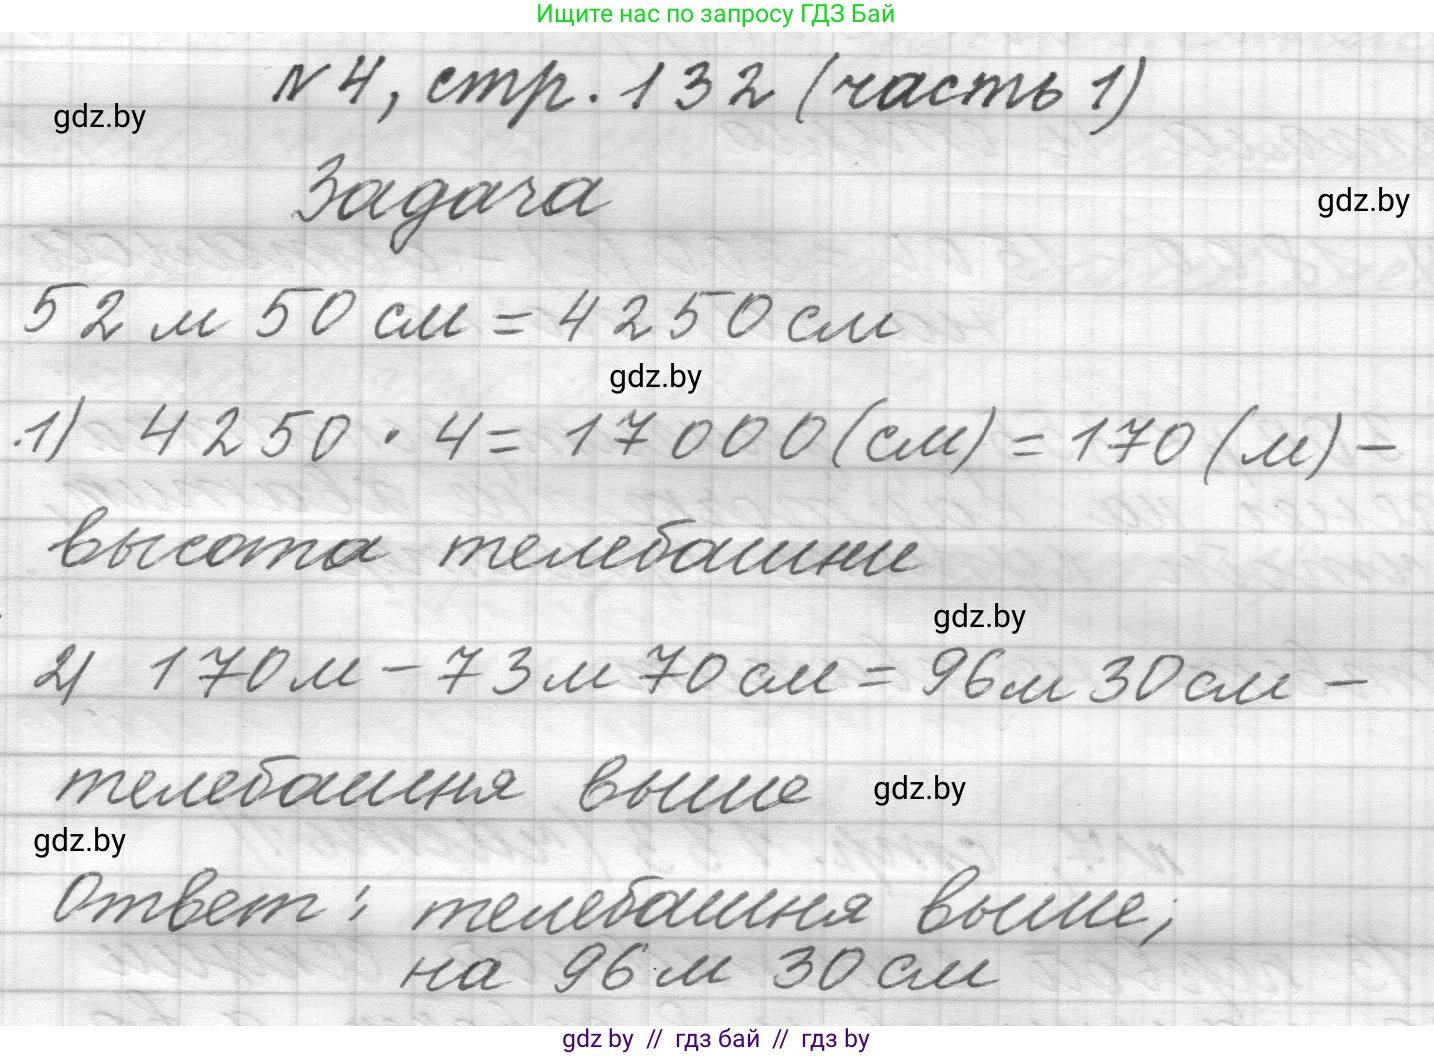 Ищите нас по запросу ГДЗ Бай
№4, стр. 132 (часть 1)
gdz.by
Задача
gdz.by
52 м 50 см = 4250 см
gdz.by
1) 4250 · 4 = 17000 (см) = 170 (м) -
высота телебашни
gdz.by
2) 170 м - 73 м 70 см = 96 м 30 см -
телебашня выше
gdz.by
gdz.by
Ответ: телебашня выше,
на 96 м 30 см
gdz.by // гдз бай // гдз by